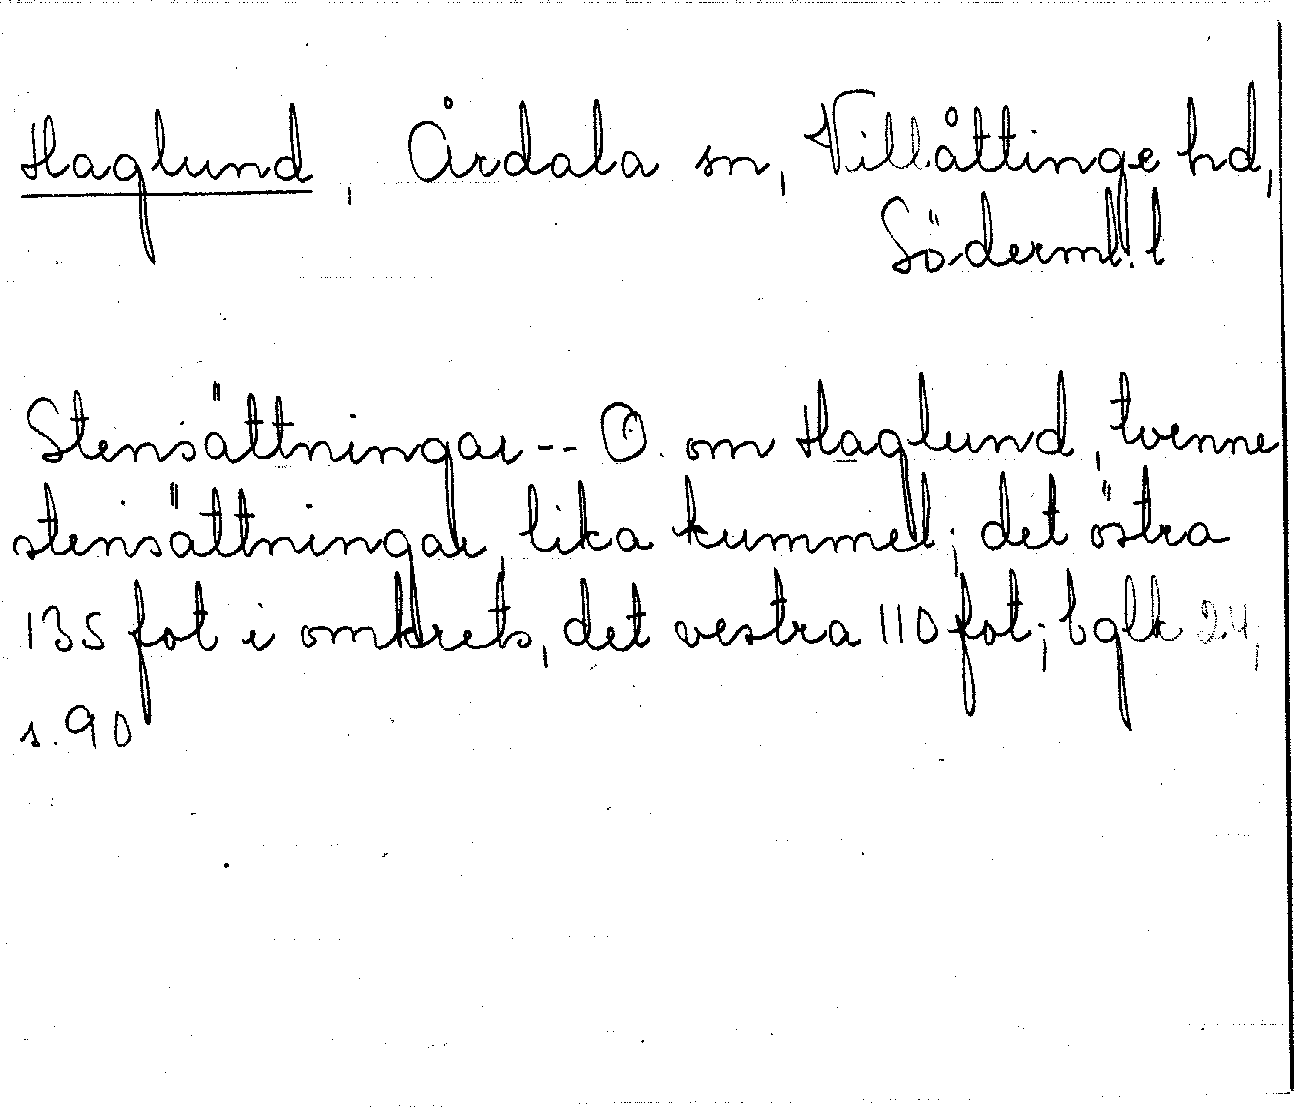 Haglund, Årdala sn, Villåttinge hd,
Söderml. l
Stensättningar -- O. om Haglund, tvenne
stensättningar, lika kummel; det östra
135 fot i omkrets, det vestra 110 fot; bglk 24,
s. 90